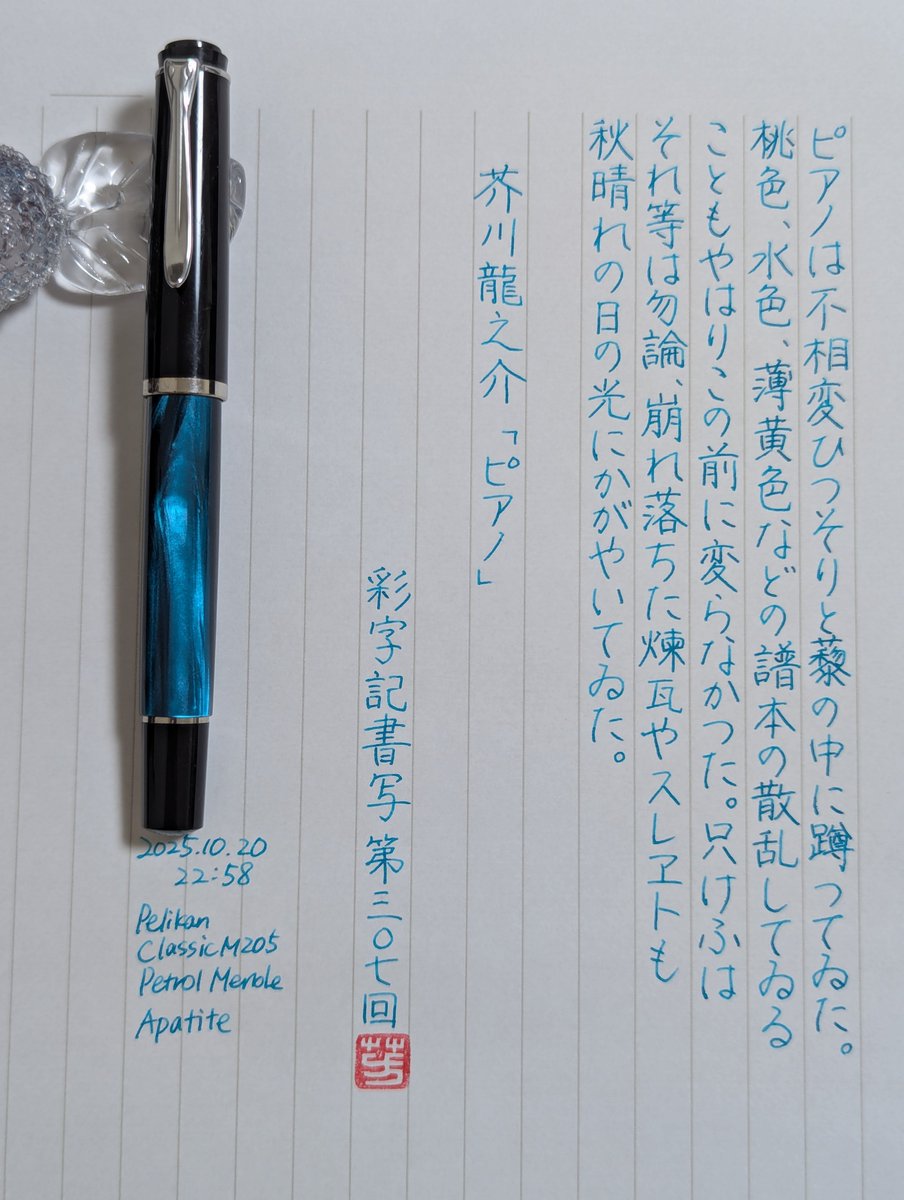 ピアノは不相変ひつそりと藜の中に蹲つてゐた。
桃色、水色、薄黄色などの譜本の散乱してゐる
こともやはりこの前に変らなかつた。只けふは
それ等は勿論、崩れ落ちた煉瓦やスレヱトも
秋晴れの日の光にかがやいてゐた。
芥川龍之介「ピアノ」
彩字記書写 第三〇七回
芳
2025.10.20
22:58
Pelikan
Classic M205
Petrol Marble
Apatite